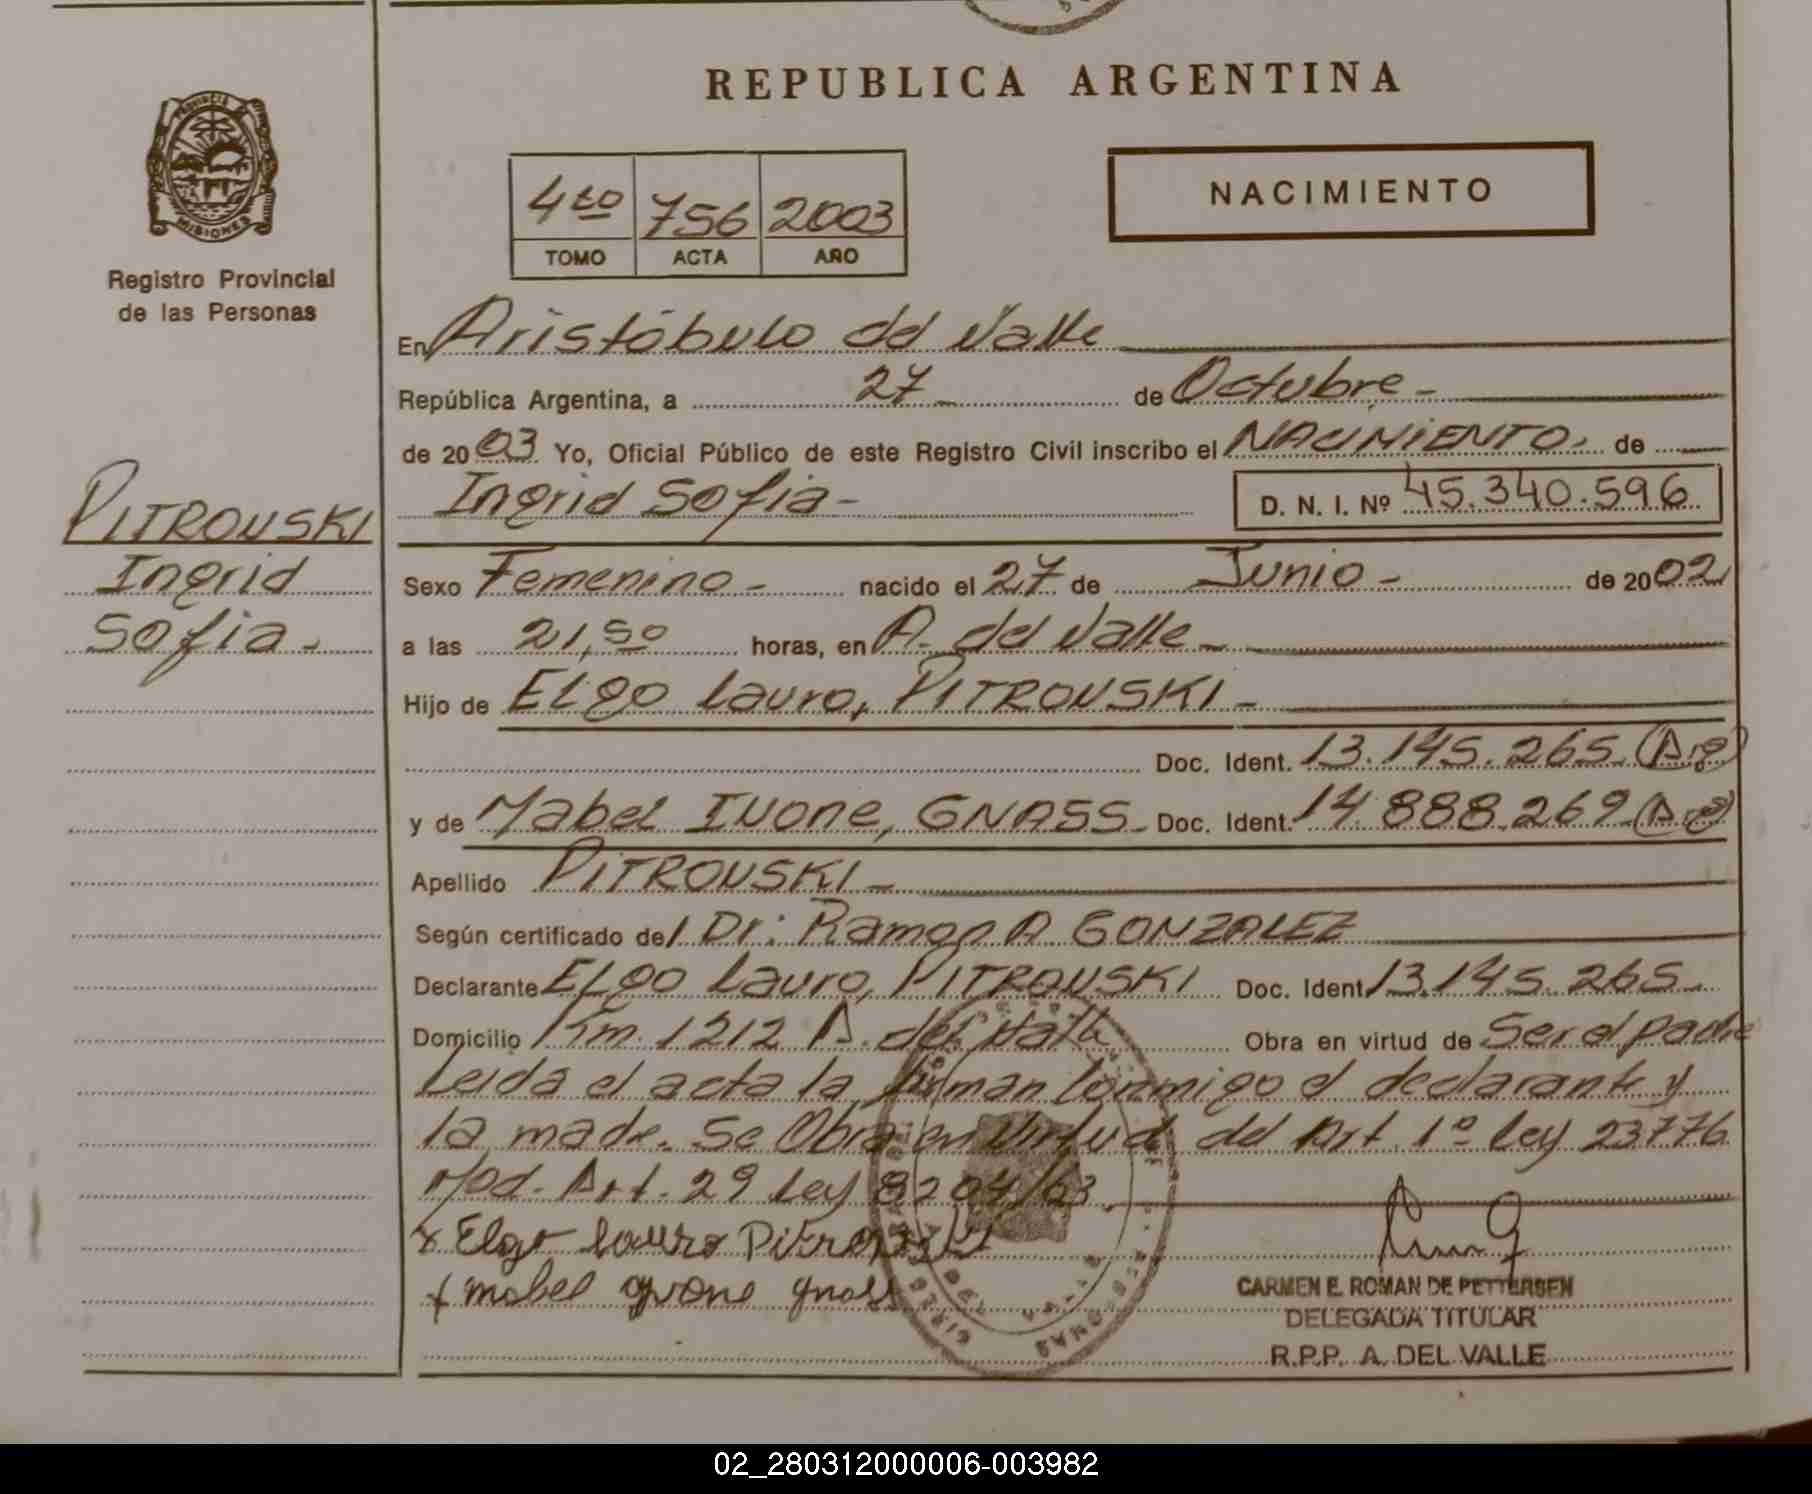 REPUBLICA ARGENTINA
PROVINCIA DE
MISIONES
Registro Provincial
de las Personas
4to 756 2003
TOMO ACTA AÑO
NACIMIENTO
PITROUSKI
Ingrid
Sofia.
En Aristóbulo del Valle
República Argentina, a 27 de Octubre -
de 2003 Yo, Oficial Público de este Registro Civil inscribo el NACIMIENTO. de
Ingrid Sofia -
D. N. I. Nº 45.340.596
Sexo Femenino - nacido el 27 de Junio - de 2002
a las 21,50 horas, en A. del Valle -
Hijo de Elgo Lauro, PITROUSKI -
Doc. Ident. 13.145.265 (Arg)
y de Mabel Ivone, GNASS - Doc. Ident. 14.888.269 (Arg)
Apellido PITROUSKI -
Según certificado del Dr: Ramon A GONZALEZ
Declarante Elgo Lauro, PITROUSKI Doc. Ident. 13.145.265
Domicilio Km. 1212 A. del Valle Obra en virtud de Ser el padre
Leida el acta la firman conmigo el declarante y
la madre. Se Obra en virtud del Art. 1º Ley 23776
Mod. Art. 29 Ley 8204/63
x Elgo Lauro Pitrouski
x mabel yvone gnass
CARMEN E. ROMAN DE PETTERSEN
DELEGADA TITULAR
R.P.P. A. DEL VALLE
02_280312000006-003982